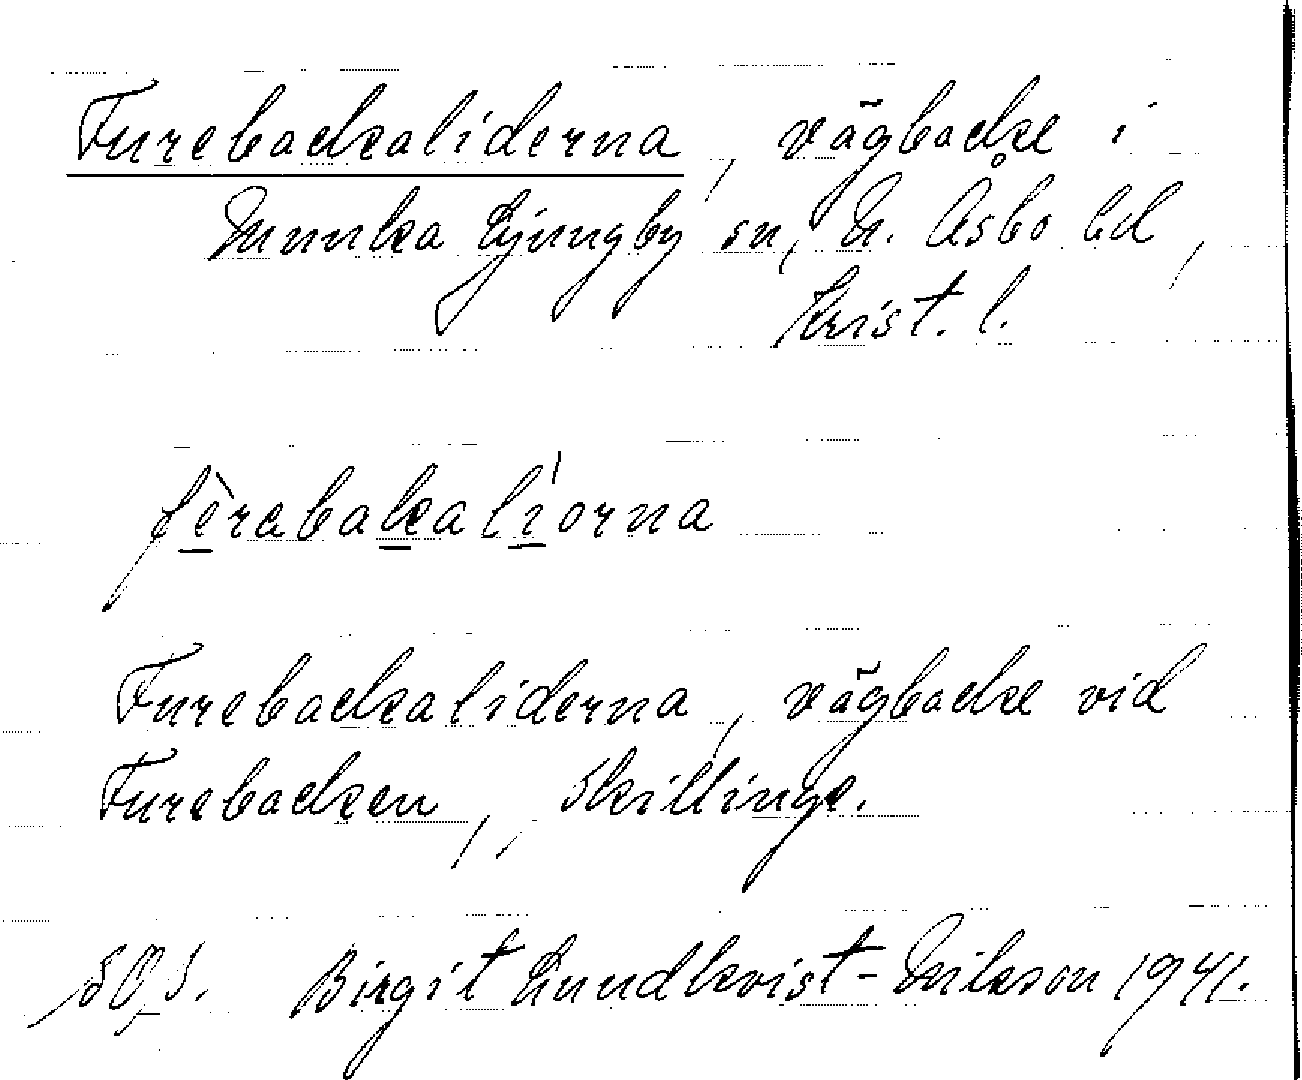 Furebackaliderna, vägbacke i
Munka Ljungby sn, N. Åsbo hd,
Krist. l.
fèrabakalíorna
Furebackaliderna, vägbacke vid
Furebacken, Skillinge.
Birgit Lundkvist-Nilsson 1941.